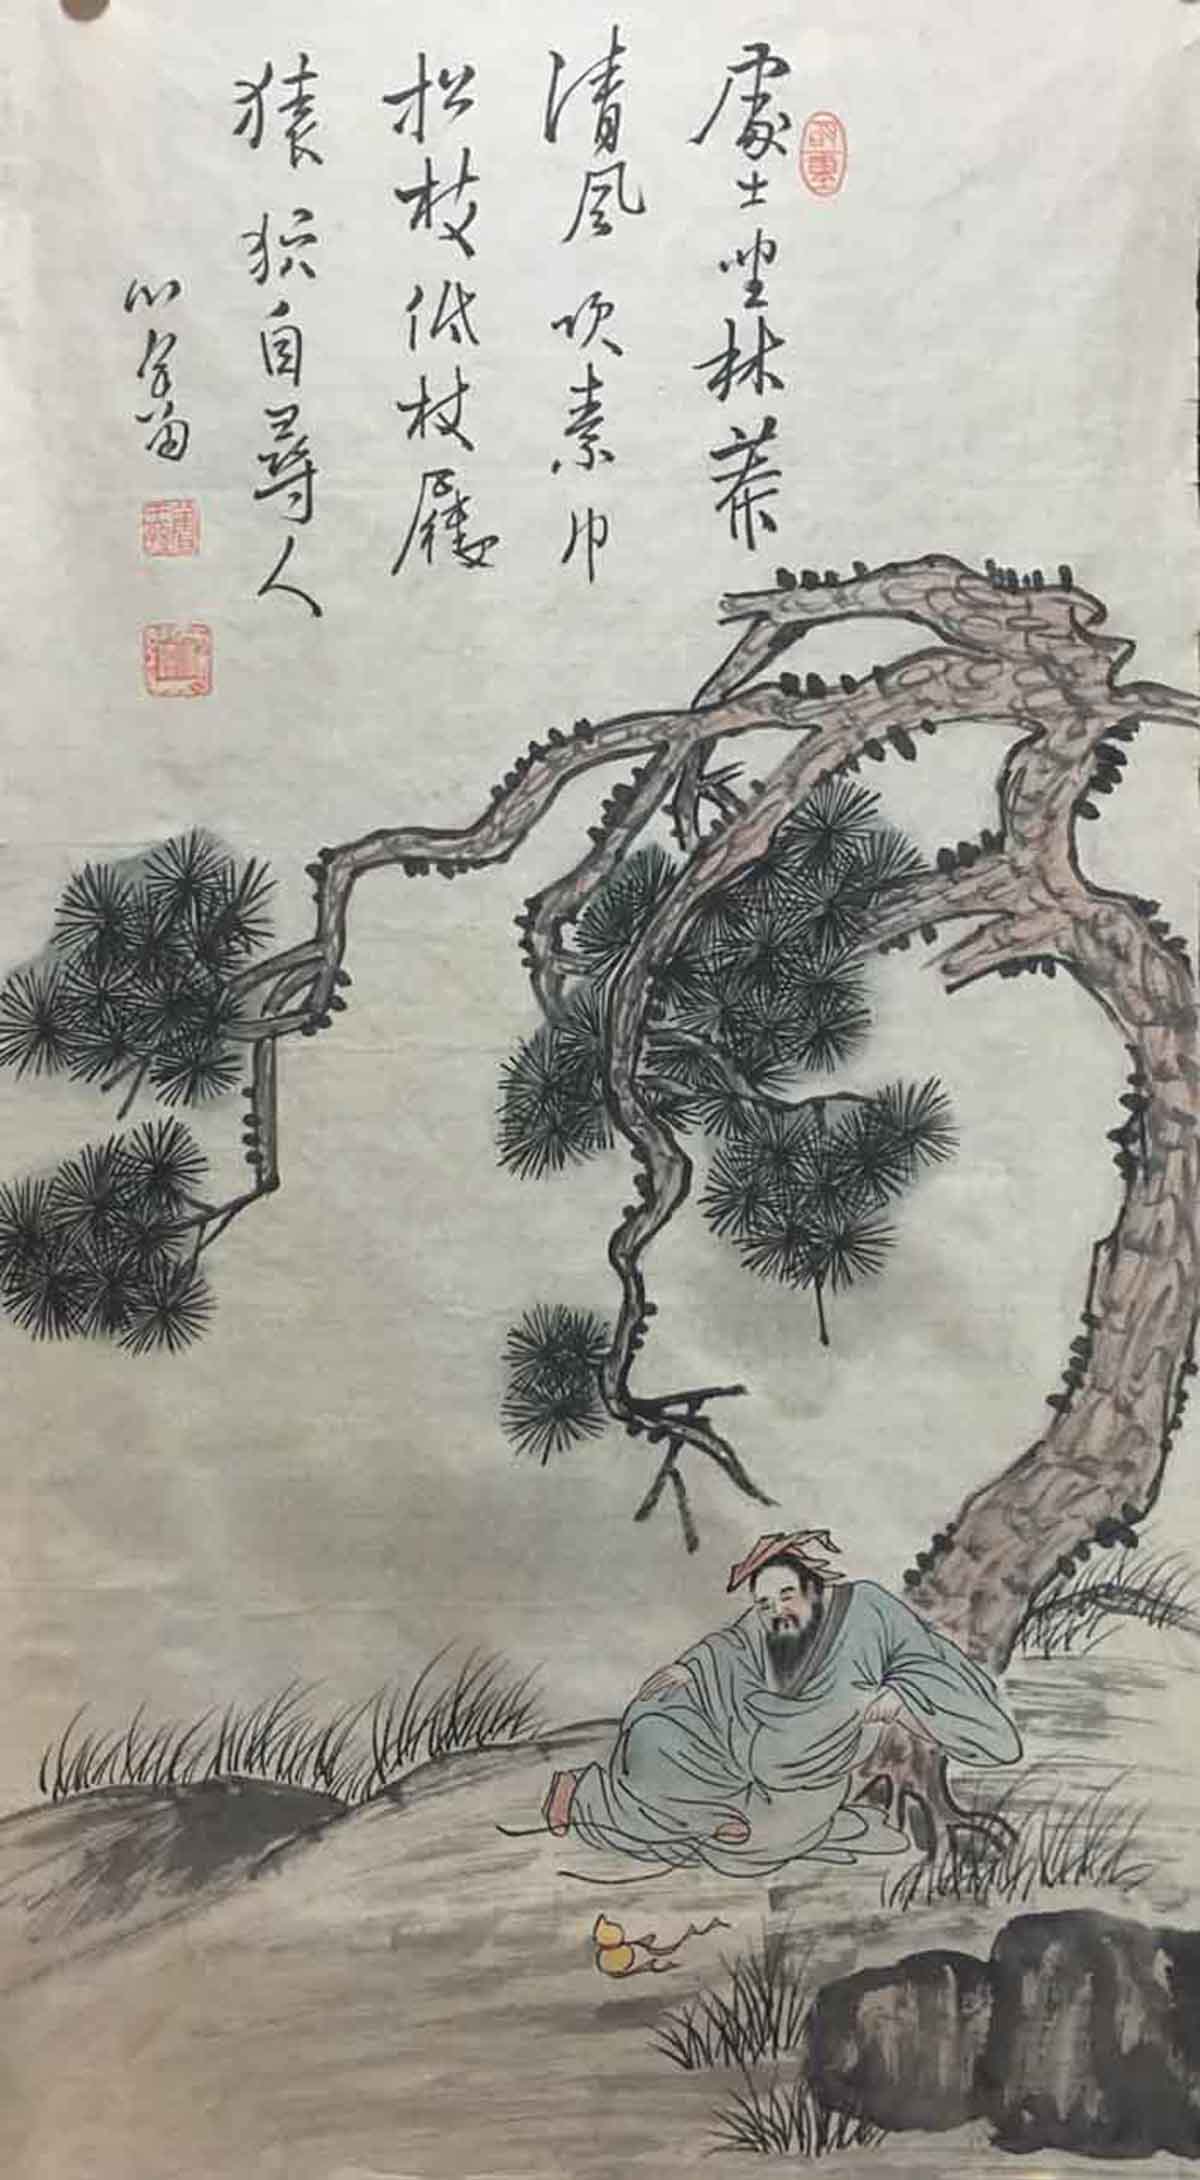 處士坐林莽
清風吹素巾
松枝低杖屨
猿狖自尋人
心畬